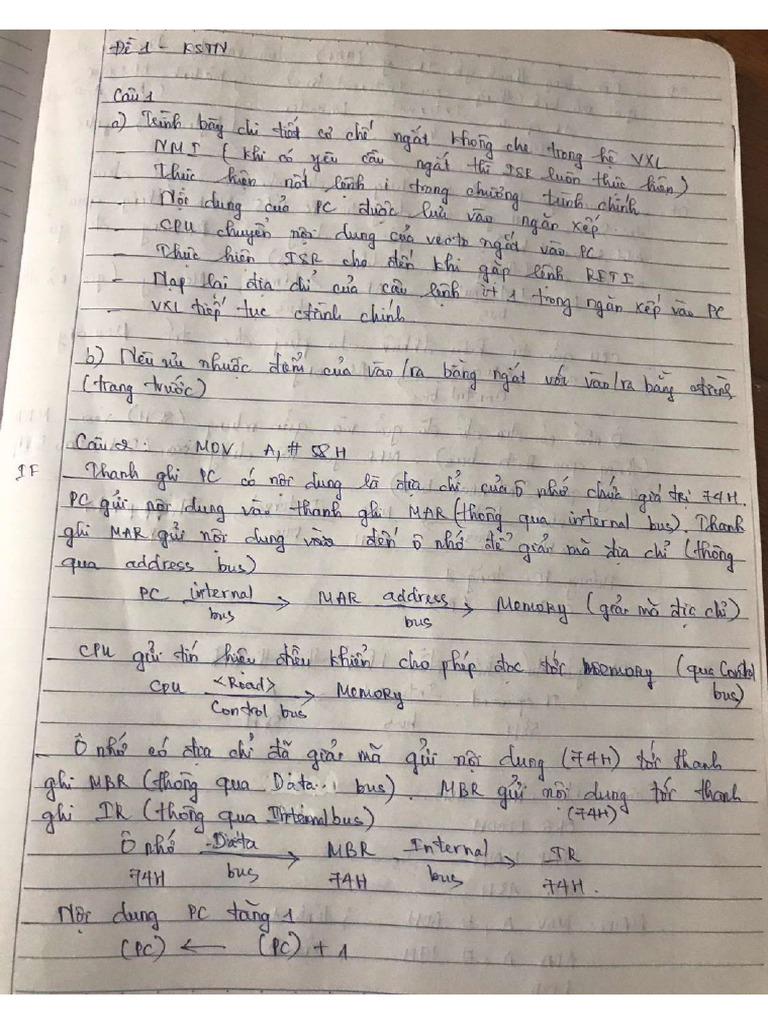 Đề 1 - KSTN
Câu 1
a) Trình bày chi tiết cơ chế ngắt không che trong hệ VXL
NMI (khi có yêu cầu ngắt thì ISR luôn thực hiện)
- Thực hiện nốt lệnh i trong chương trình chính
- Nội dung của PC được lưu vào ngăn xếp
- CPU chuyển nội dung của vectơ ngắt vào PC
- Thực hiện ISR cho đến khi gặp lệnh RETI
- Nạp lại địa chỉ của câu lệnh i+1 trong ngăn xếp vào PC
- VXL tiếp tục ctrình chính
b) Nêu ưu nhược điểm của vào/ra bằng ngắt với vào/ra bằng ctrình
(trang trước)
Câu 2: MOV A, # 58H
IF Thanh ghi PC có nội dung là địa chỉ của ô nhớ chứa giá trị 74H.
PC gửi nội dung vào thanh ghi MAR (thông qua internal bus). Thanh
ghi MAR gửi nội dung đến ô nhớ để giải mã địa chỉ (thông
qua address bus)
PC internal bus → MAR address bus → Memory (giải mã địa chỉ)
CPU gửi tín hiệu điều khiển cho phép đọc tới MEMORY (qua Control
bus)
CPU <Read> Control bus → Memory
Ô nhớ có địa chỉ đã giải mã gửi nội dung (74H) tới thanh
ghi MBR (thông qua Data bus). MBR gửi nội dung tới thanh
ghi IR (thông qua Internal bus) (74H)
Ô nhớ Data bus → MBR Internal bus → IR
74H 74H 74H.
Nội dung PC tăng 1
(PC) ← (PC) + 1